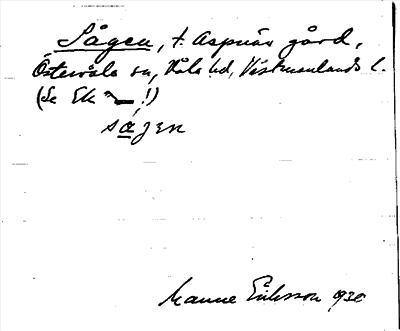 Sågen, t. Aspnäs gård,
Östervåla sn, Våla hd, Västmanlands l.
(Se Ek !)
såɡen
Manne Eriksson 1930